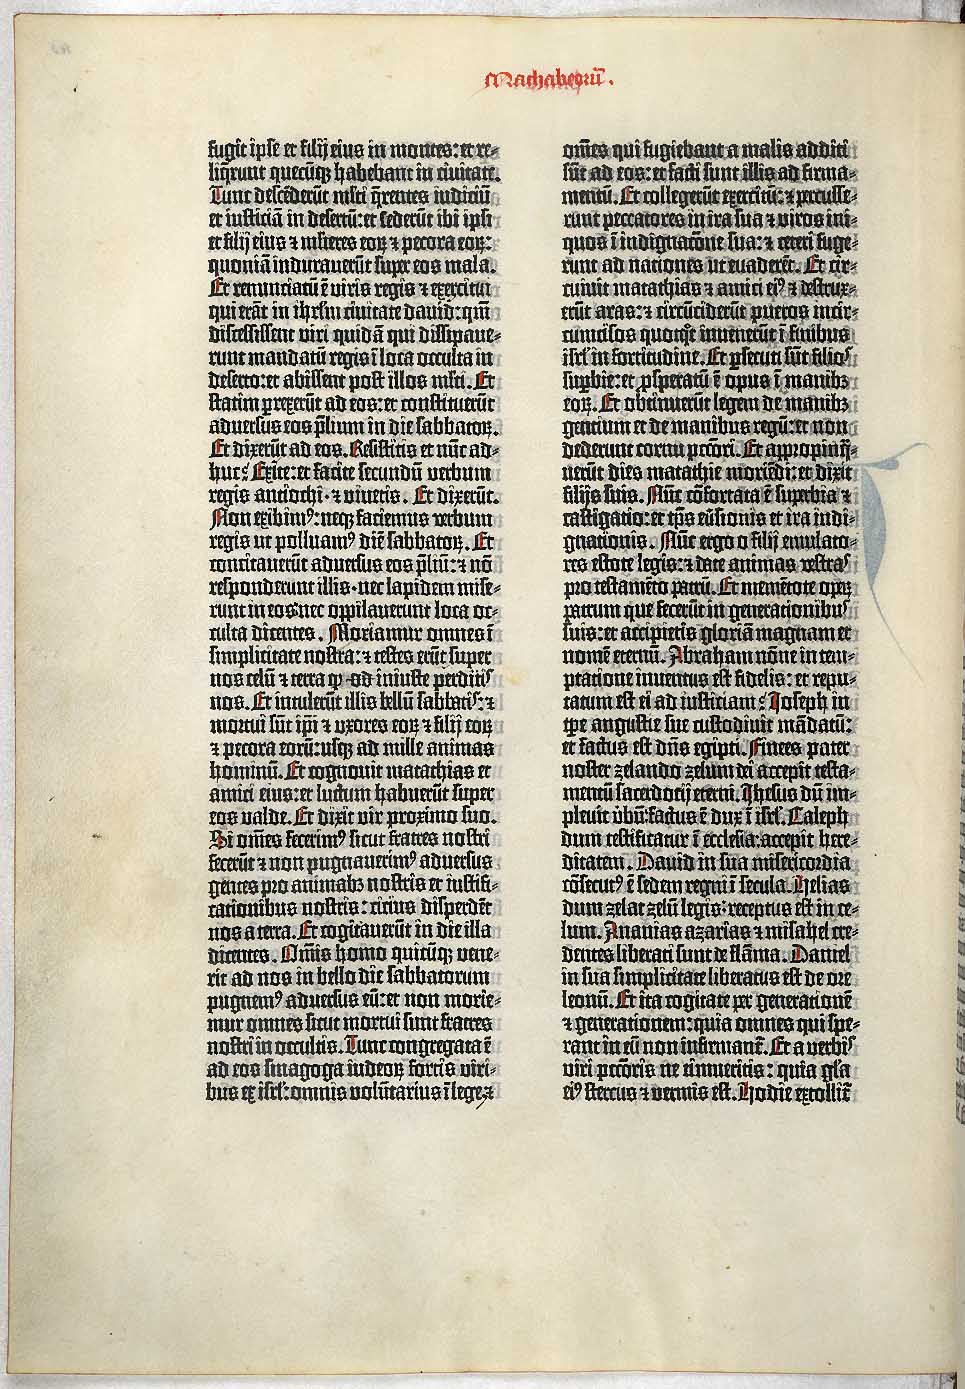 Machabeorū.
fugit ip̄se et filij eius in montes: et re-
liq̄runt quecūq; habebant in ciuitate.
Tunc descēderūt ml̄ti q̄rentes iudiciū
et iusticiā in desertū: et sederūt ibi ipsi
et filij eius ⁊ ml̄ieres eoꝝ ⁊ pecora eoꝝ:
quoniā indurauerūt super eos mala.
Et renunciatū ē viris regis ⁊ exercitui
qui erāt in ihrl̄m ciuitate dauid: qm̄
discessissent viri quidā qui dissipaue-
runt mandatū regis ī loca occulta in
deserto: et abissent post illos ml̄ti. Et
statim p̲rexerūt ad eos: et constituerūt
aduersus eos p̄lium in die sabbatoꝝ.
Et dixerūt ad eos. Resistitis et nūc ad-
huc? Exite: et facite secundū verbum
regis antiochi · ⁊ viuetis. Et dixerūt.
Non exibimꝰ: neq; faciemus verbum
regis ut polluamꝰ diē sabbatoꝝ. Et
concitauerūt aduersus eos p̄liū: ⁊ nō
responderunt illis · nec lapidem mise-
runt in eos: nec oppilauerunt loca oc-
culta dicentes. Moriamur omnes ī
simplicitate nostra: ⁊ testes erūt super
nos celū ⁊ terra ꝙ ad iniuste perditis
nos. Et intulerūt illis bellū sabbatis: ⁊
mortui sūt ip̄i ⁊ vxores eoꝝ ⁊ filij eoꝝ
⁊ pecora eorū: usq; ad mille animas
hominū. Et cognouit matathias et
amici eius: et luctum habuerūt super
eos valde. Et dixit vir proximo suo.
Si om̄es fecerimꝰ sicut fratres nostri
fecerūt ⁊ non pugnauerimꝰ aduersus
gētes pro animabꝫ nostris et iustifi-
cationibus nostris: citius disperdēt
nos a terra. Et cogitauerūt in die illa
dicentes. Om̄is homo quicūq; vene-
rit ad nos in bello die sabbatorum
pugnemꝰ aduersus eū: et non morie-
mur omnes sicut mortui sunt fratres
nostri in occultis. Tunc congregata ē
ad eos sinagoga iudeoꝝ fortis viri-
bus ex isrl̄: omnis volūtarius ī lege: ⁊
om̄es qui fugiebant a malis additi
sūt ad eos: et facti sunt illis ad firma-
mentū. Et collegerūt exercitū: ⁊ percusse-
runt peccatores in ira sua ⁊ viros ini-
quos ī indignacōne sua: ⁊ ceteri fuge-
runt ad nationes ut euaderēt. Et cir-
cuiuit matathias ⁊ amici eiꝰ ⁊ destrux-
erūt aras: ⁊ circūciderūt pueros incir-
cumcisos quotq̄t inuenerūt ī finibus
isrl̄ in fortitudine. Et p̲secuti sūt filios
sup̲bie: et p̲speratū ē opus ī manibꝫ
eoꝝ. Et obtinuerūt legem de manibꝫ
gentium et de manibus regū: et non
dederunt cornu pctōri. Et appropinq̄-
uerūt dies matathie moriēdi: et dixit
filijs suis. Nūc cōfortata ē superbia ⁊
castigatio: et tp̄s eūsionis et ira indi-
gnationis. Nūc ergo o filij emulato-
res estote legis: ⁊ date animas vestras
pro testamēto patrū. Et memētote opeꝝ
patrum que fecerūt in generationibus
suis: et accipietis gloriā magnam et
nomē eternū. Abraham nōne in tem-
ptatione inuentus est fidelis: et repu-
tatum est ei ad iusticiam? Joseph in
tp̄e angustie sue custodiuit mādatū:
et factus est dn̄s egipti. Finees pater
noster zelando zelum dei accepit testa-
mentū sacerdocij eterni. Jhesus dū im-
pleuit v̄bū: factus ē dux ī isrl̄. Caleph
dum testificatur ī ecclesia: accepit here-
ditatem. Dauid in sua misericordia
cōsecutꝰ ē sedem regni ī secula. Helias
dum zelat zelū legis: receptus est in ce-
lum. Ananias azarias ⁊ misahel cre-
dentes liberati sunt de flāma. Daniel
in sua simplicitate liberatus est de ore
leonū. Et ita cogitate per generationē
⁊ generationem: quia omnes qui spe-
rant in eū non infirmant̄. Et a verbis
viri pctōris ne timueritis: quia gl̄a
eiꝰ stercus ⁊ vermis est. Hodie extollit̄